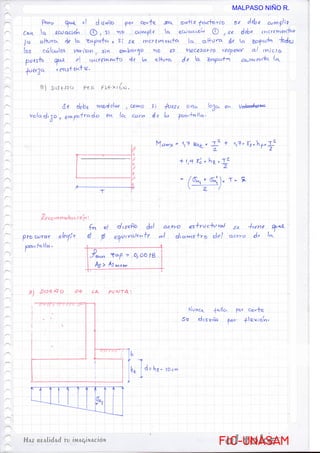 MALPASO NIÑO R.
Pero que el diseño por corte sea satisfactorio se debe cumplir
con la ecuación ①, si no cumple la ecuación ①, se debe incrementar
la altura de la zapata, si se incrementa la altura de la zapata todos
los cálculos varían, sin embargo no es necesario regresar al inicio
puesto que el incremento de la altura de la zapata aumenta la
fuerza resistente.
B) DISEÑO POR FLEXIÓN.
Se debe modelar, como si fuese una viga en
voladizo, empotrado en la cara de la pantalla:
T
Recomendación:
En el diseño del acero estructural se tiene que
procurar elegir el ø equivalente al diametro del acero de la
pantalla.
ρmin zap = 0,0018
As > As min
a) DISEÑO DE LA PUNTA:
Nunca falla por corte
Se diseña por flexión.
h
hz
d = hz - 10cm
Haz realidad tu imaginación
FIC-UNASAM